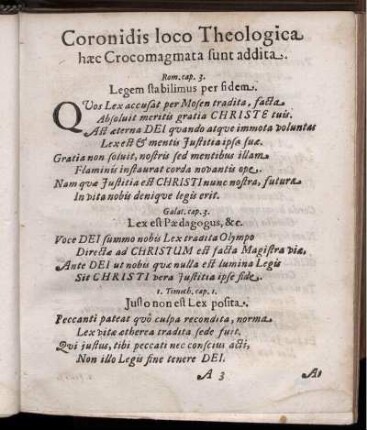 Coronidis loco Theologica
hæc Crocomagmata sunt addita.
Rom. cap. 3.
Legem stabilimus per fidem.
QVos Lex accusat per Mosen tradita, facta
Absoluit meritis gratia CHRISTE tuis.
Ast æterna DEI quando atque immota voluntas
Lex est & mentis Justitia ipsa suæ.
Gratia non soluit, nostris sed mentibus illam
Flaminis instaurat corda novantis ope.
Nam quæ Justitia est CHRISTI nunc nostra, futura
In vita nobis denique legis erit.
Galat. cap. 3.
Lex est Pædagogus, &c.
Voce DEI summo nobis Lex tradita Olympo
Directæ ad CHRISTUM est facta Magistra viæ,
Ante DEI ut nobis quæ nulla est lumina Legis
Sit CHRISTI vera Justitia ipse fide.
1. Timoth. cap. 1.
Justo non est Lex posita.
Peccanti pateat quô culpa recondita, norma
Lex vitæ ætherea tradita sede fuit.
Qui justus, tibi peccati nec conscius acti,
Non illo Legis fine tenere DEI.
A 3